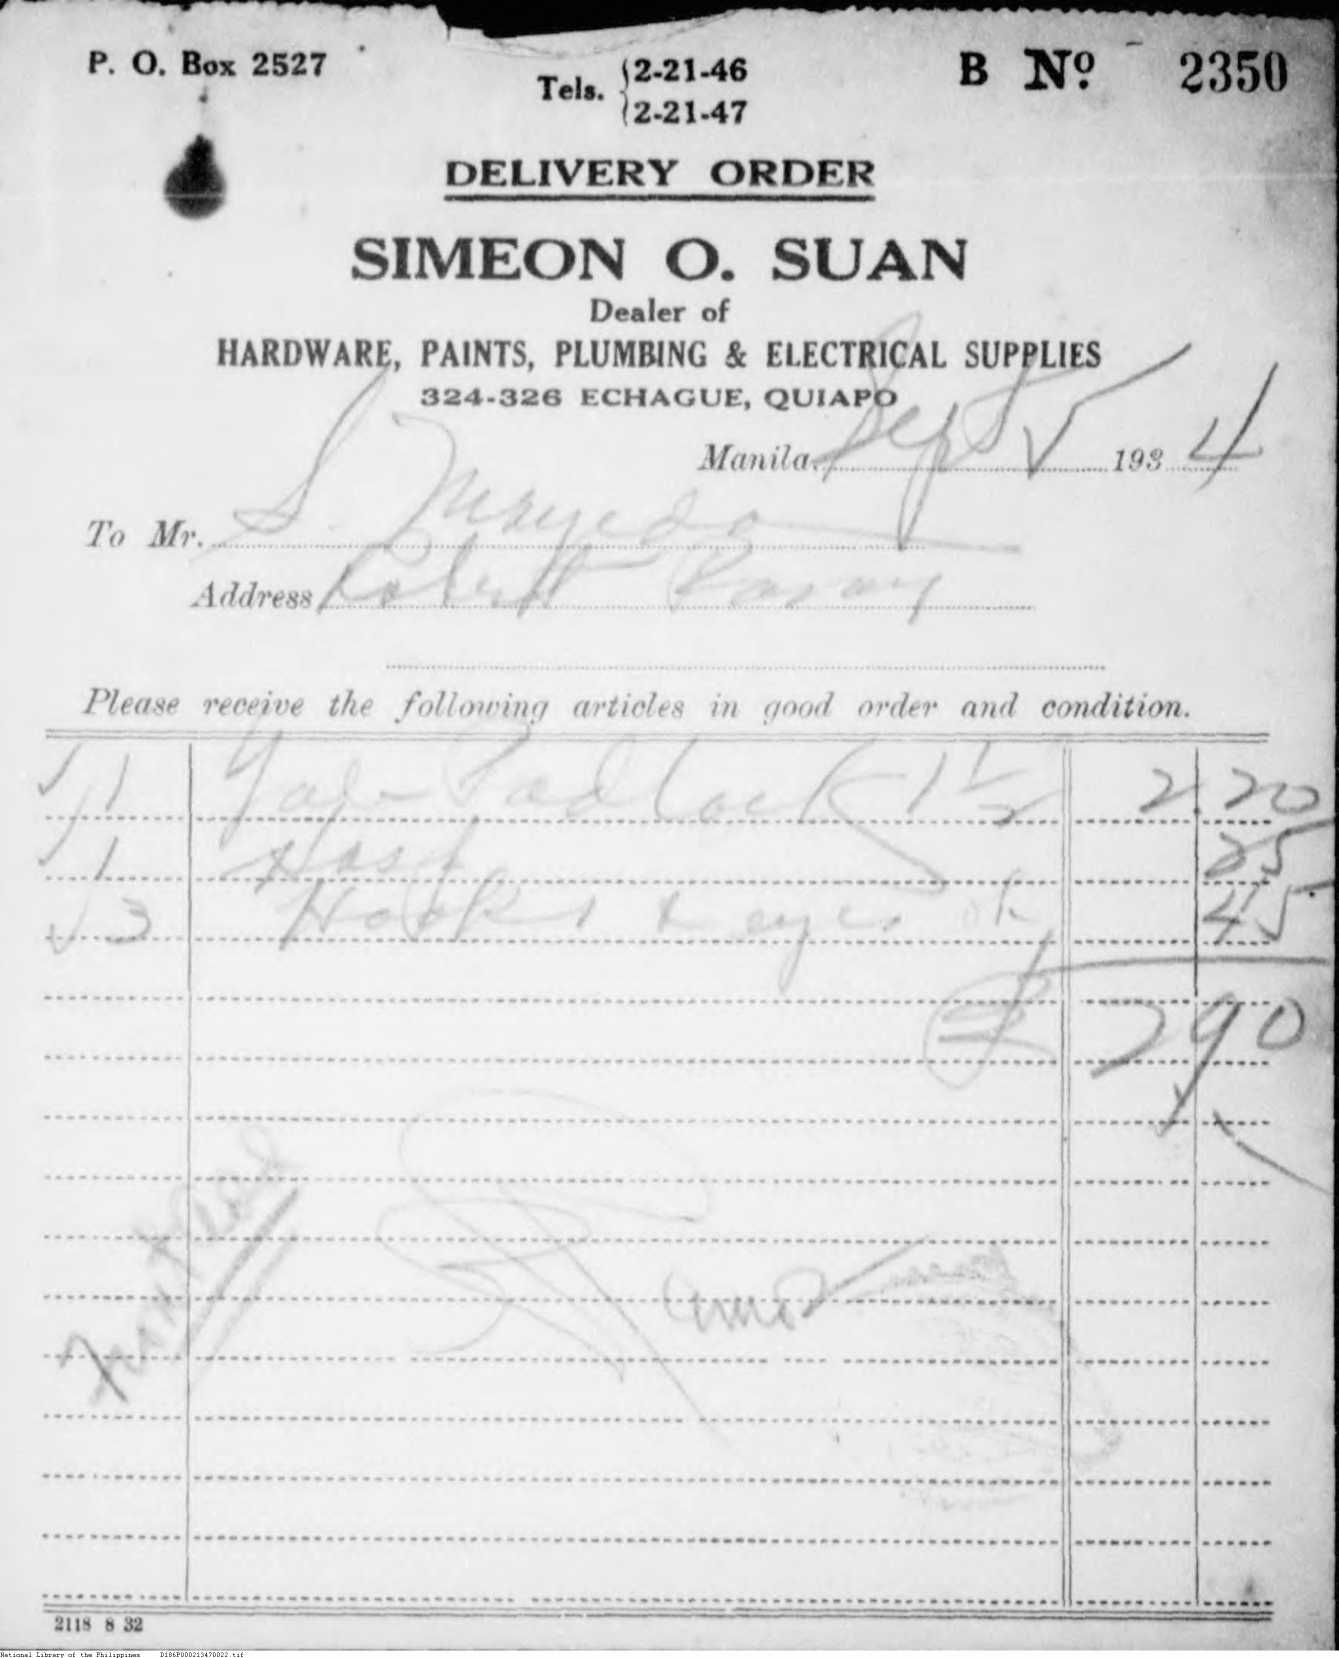 P. O. Box 2527
Tels. 2-21-46
2-21-47
B Nº 2350
DELIVERY ORDER
SIMEON O. SUAN
Dealer of
HARDWARE, PAINTS, PLUMBING & ELECTRICAL SUPPLIES
324-326 ECHAGUE, QUIAPO
Manila, Sept 5 1934
To Mr. S.
Address Robert
Please receive the following articles in good order and condition.
1 Yale Padlock 1 1/2 2.20
1 Hasp 25
3 Hooks & eyes 45
₱ 2 90
2118 8 32
National Library of the Philippines D186P000213470022.tif